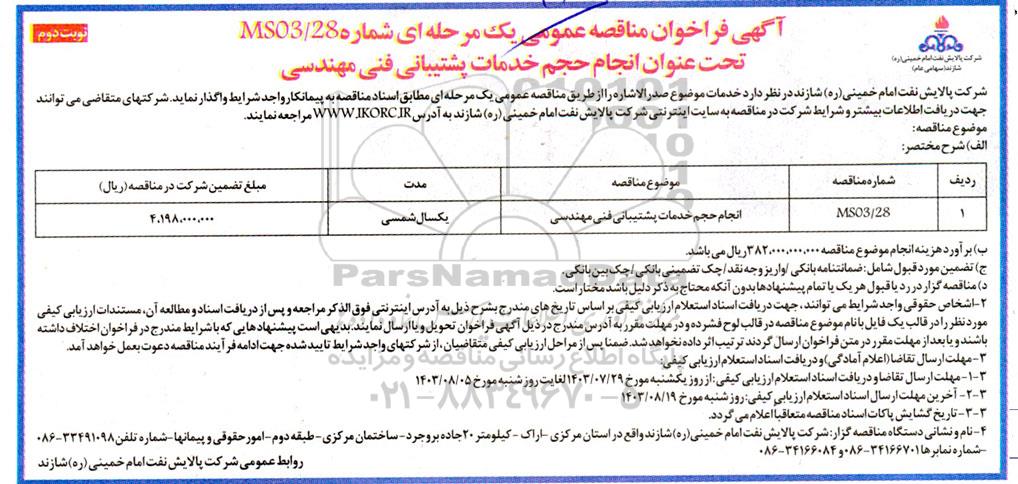 آگهی فراخوان مناقصه عمومی یک مرحله ای شماره MS03/28
نوبت دوم
تحت عنوان انجام حجم خدمات پشتیبانی فنی مهندسی
شرکت پالایش نفت امام خمینی (ره)
شازند (سهامی عام)
شرکت پالایش نفت امام خمینی (ره) شازند در نظر دارد خدمات موضوع صدرالاشاره را از طریق مناقصه عمومی یک مرحله ای مطابق اسناد مناقصه به پیمانکار واجد شرایط واگذار نماید. شرکتهای متقاضی می توانند
جهت دریافت اطلاعات بیشتر و شرایط شرکت در مناقصه به سایت اینترنتی شرکت پالایش نفت امام خمینی (ره) شازند به آدرس WWW.IKORC.IR مراجعه نمایند.
موضوع مناقصه:
الف) شرح مختصر:
ردیف شماره مناقصه موضوع مناقصه مدت مبلغ تضمین شرکت در مناقصه (ریال)
۱ MS03/28 انجام حجم خدمات پشتیبانی فنی مهندسی یکسال شمسی ۴،۱۹۸،۰۰۰،۰۰۰
ب) برآورد هزینه انجام موضوع مناقصه ۳۸۲،۰۰۰،۰۰۰،۰۰۰ ریال می باشد.
ج) تضمین مورد قبول شامل: ضمانتنامه بانکی / واریز وجه نقد / چک تضمینی بانکی / چک بین بانکی.
د) مناقصه گزار در رد یا قبول هر یک یا تمام پیشنهادها بدون آنکه محتاج به ذکر دلیل باشد مختار است.
۲- اشخاص حقوقی واجد شرایط می توانند، جهت دریافت اسناد استعلام ارزیابی کیفی بر اساس تاریخ های مندرج بشرح ذیل به آدرس اینترنتی فوق الذکر مراجعه و پس از دریافت اسناد و مطالعه آن، مستندات ارزیابی کیفی
مورد نظر را در قالب یک فایل با نام موضوع مناقصه در قالب لوح فشرده و در مهلت مقرر به آدرس مندرج در ذیل آگهی فراخوان تحویل و یا ارسال نمایند. بدیهی است پیشنهادهایی که با شرایط مندرج در فراخوان اختلاف داشته
باشند و یا بعد از مهلت مقرر در متن فراخوان ارسال گردند ترتیب اثر داده نخواهد شد. ضمنا پس از مراحل ارزیابی کیفی متقاضیان، از شرکتهای واجد شرایط تایید شده جهت ادامه فرآیند مناقصه دعوت بعمل خواهد آمد.
۳- مهلت ارسال تقاضا (اعلام آمادگی) و دریافت اسناد استعلام ارزیابی کیفی:
۳-۱- مهلت ارسال تقاضا و دریافت اسناد استعلام ارزیابی کیفی: از روز یکشنبه مورخ ۱۴۰۳/۰۷/۲۹ لغایت روز شنبه مورخ ۱۴۰۳/۰۸/۰۵
۳-۲- آخرین مهلت ارسال اسناد استعلام ارزیابی کیفی: روز شنبه مورخ ۱۴۰۳/۰۸/۱۹
۳-۳- تاریخ گشایش پاکات اسناد مناقصه متعاقباً اعلام می گردد.
۴- نام و نشانی دستگاه مناقصه گزار: شرکت پالایش نفت امام خمینی (ره) شازند واقع در استان مرکزی - اراک - کیلومتر ۲۰ جاده بروجرد - ساختمان مرکزی - طبقه دوم - امور حقوقی و پیمانها - شماره تلفن ۳۳۴۹۱۰۹۸-۰۸۶
- شماره نمابرها ۳۴۱۶۶۷۰۱-۰۸۶ و ۳۴۱۶۶۰۸۴-۰۸۶
روابط عمومی شرکت پالایش نفت امام خمینی (ره) شازند
ParsNamadData
پایگاه اطلاع رسانی مناقصه و مزایده
۰۲۱-۸۸۳۴۹۶۷۰-۵